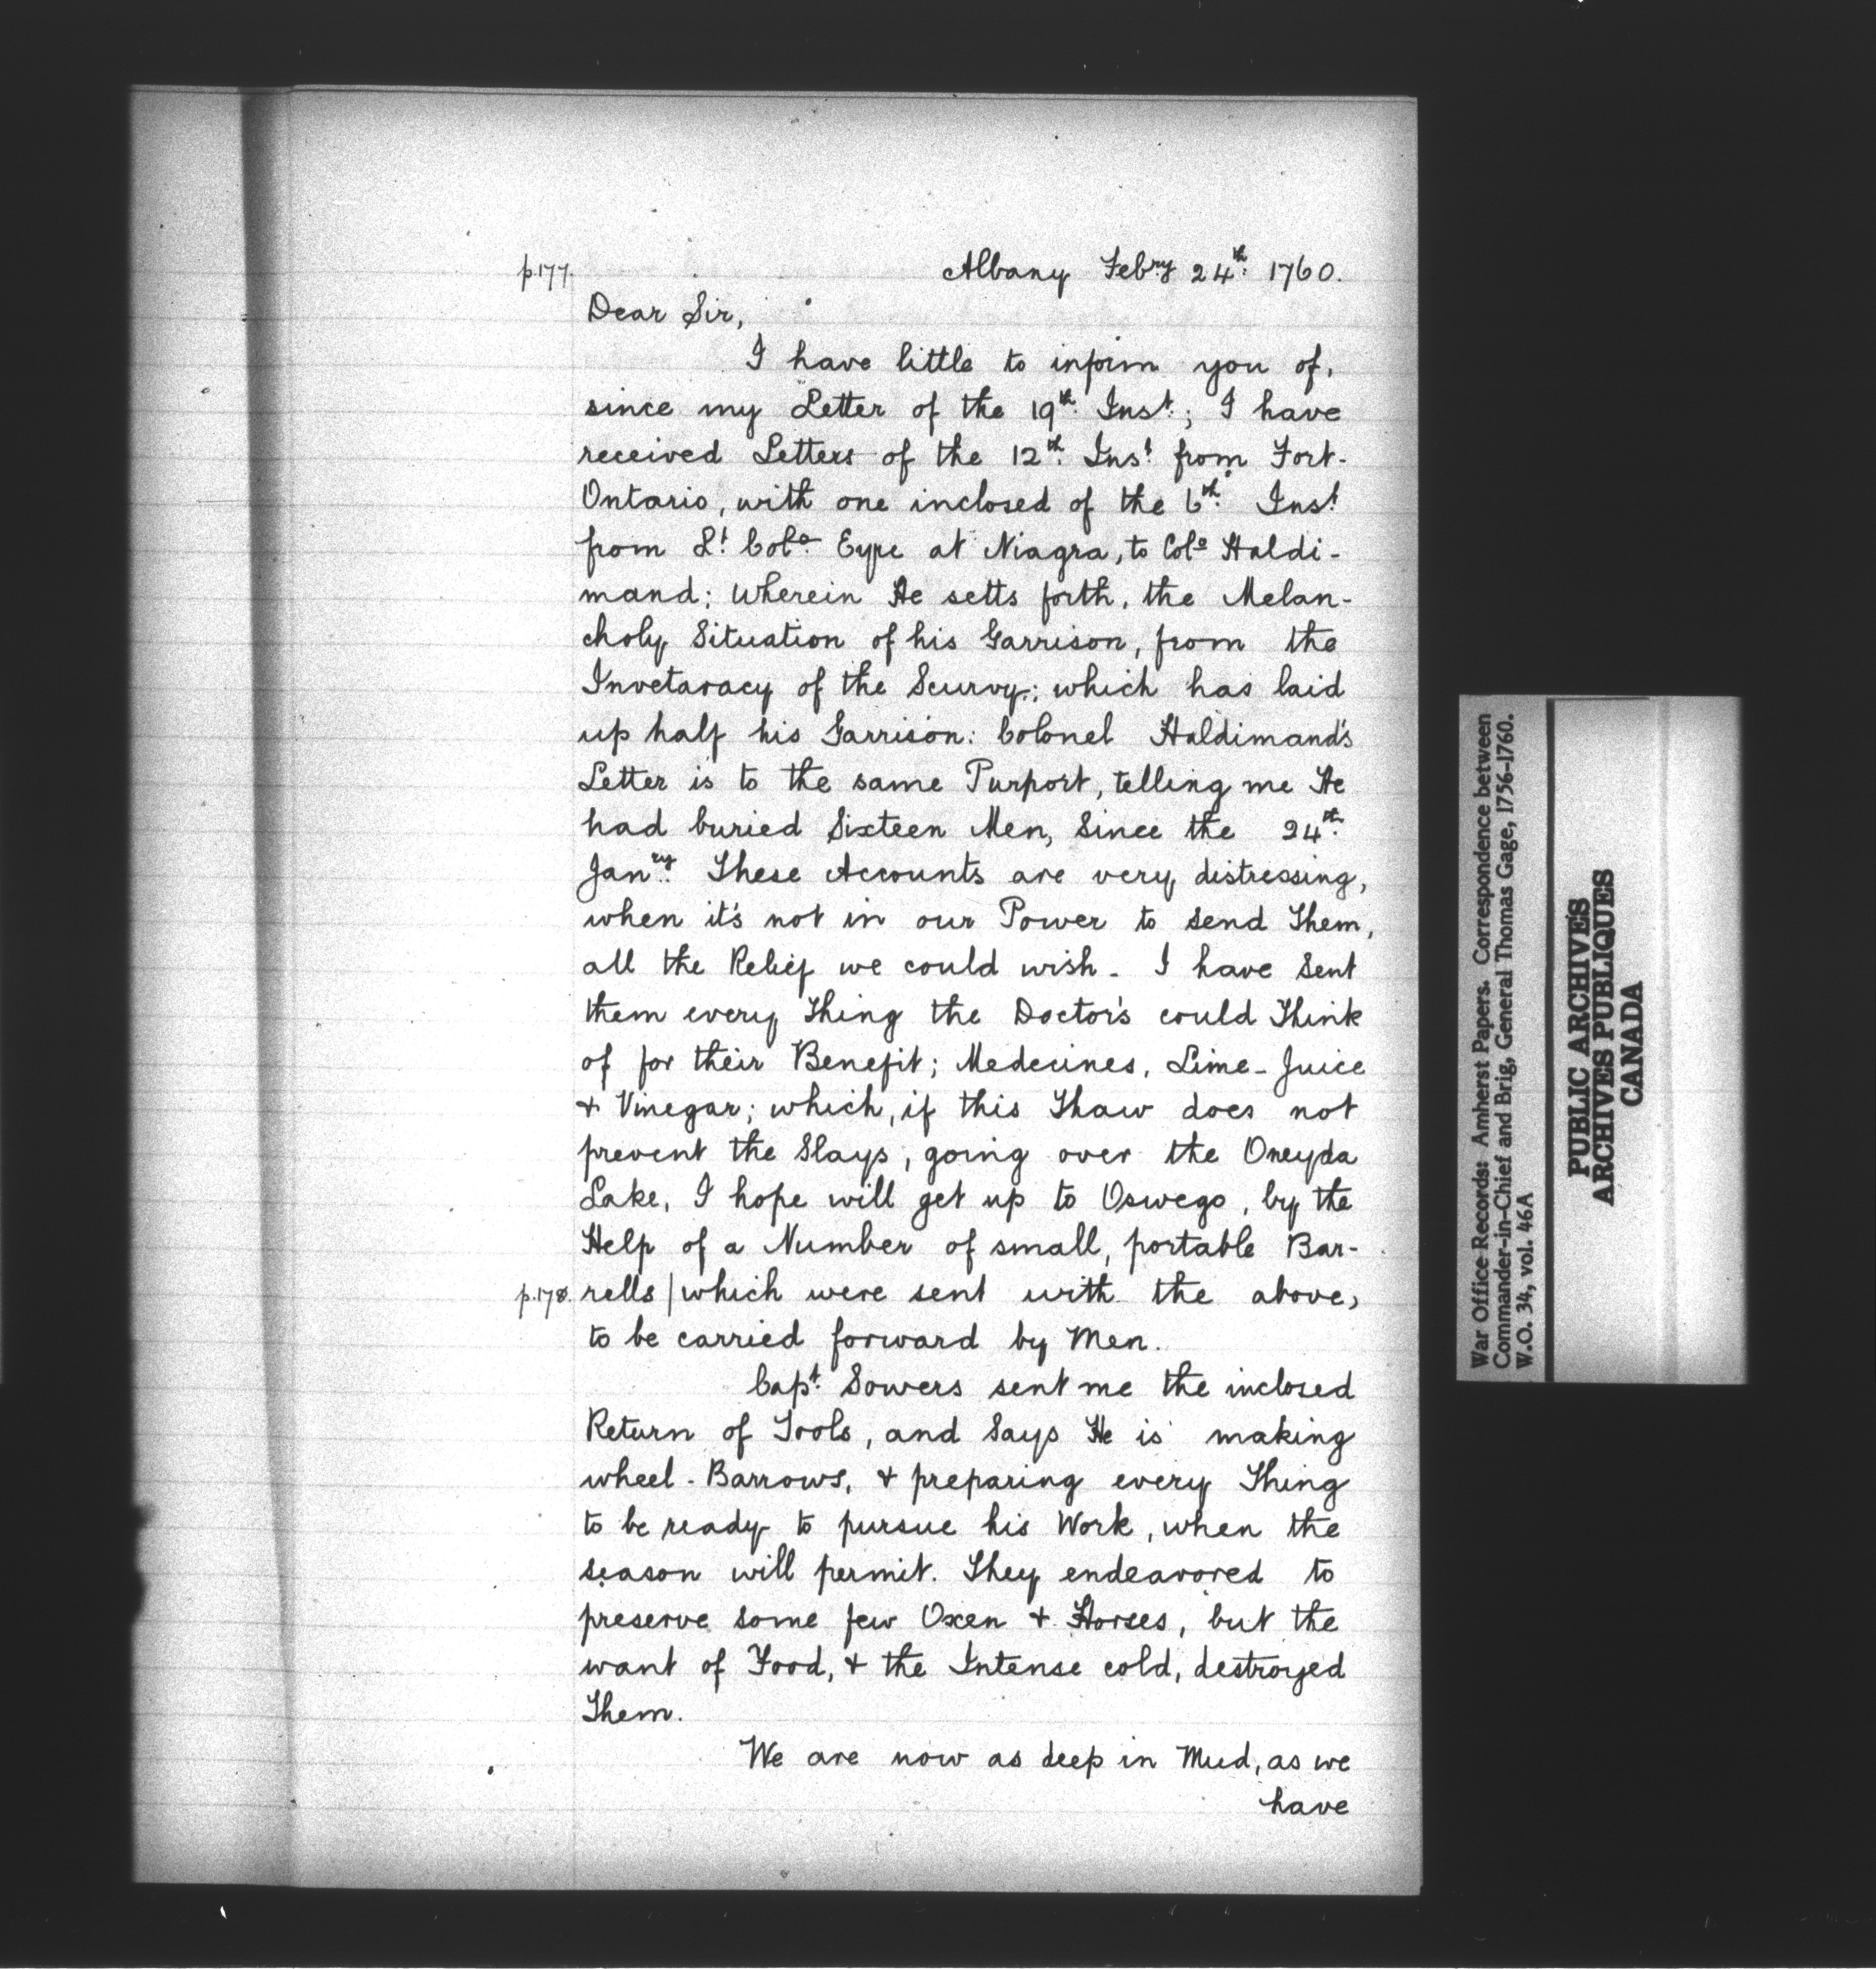 p.177. Albany Febry 24th. 1760.
Dear Sir,
I have little to inform you of,
since my Letter of the 19th. Inst.; I have
received Letters of the 12th. Inst. from Fort-
Ontario, with one inclosed of the 6th. Inst.
from Lt. Colo. Eyre at Niagra, to Colo Haldi-
mand; wherein He setts forth, the Melan-
choly Situation of his Garrison, from the
Invetaracy of the Scurvy; which has laid
up half his Garrison: Colonel Haldimand's
Letter is to the same Purport, telling me He
had buried Sixteen Men, Since the 24th.
Janry. These Accounts are very distressing,
when it's not in our Power to send Them,
all the Relief we could wish - I have Sent
them every Thing the Doctor's could Think
of for their Benefit; Medecines, Lime-Juice
& Vinegar; which, if this Thaw does not
prevent the Slays, going over the Oneyda
Lake, I hope will get up to Oswego, by the
Help of a Number of small, portable Bar-
p.178. rells | which were sent with the above,
to be carried forward by Men.
Capt. Sowers sent me the inclosed
Return of Tools, and Says He is making
wheel-Barrows, & preparing every Thing
to be ready to pursue his Work, when the
season will permit. They endeavored to
preserve some few Oxen & Horses, but the
want of Food, & the Intense cold, destroyed
Them.
We are now as deep in Mud, as we
have
War Office Records: Amherst Papers. Correspondence between
Commander-in-Chief and Brig, General Thomas Gage, 1756-1760.
W.O. 34, vol. 46A
PUBLIC ARCHIVES
ARCHIVES PUBLIQUES
CANADA